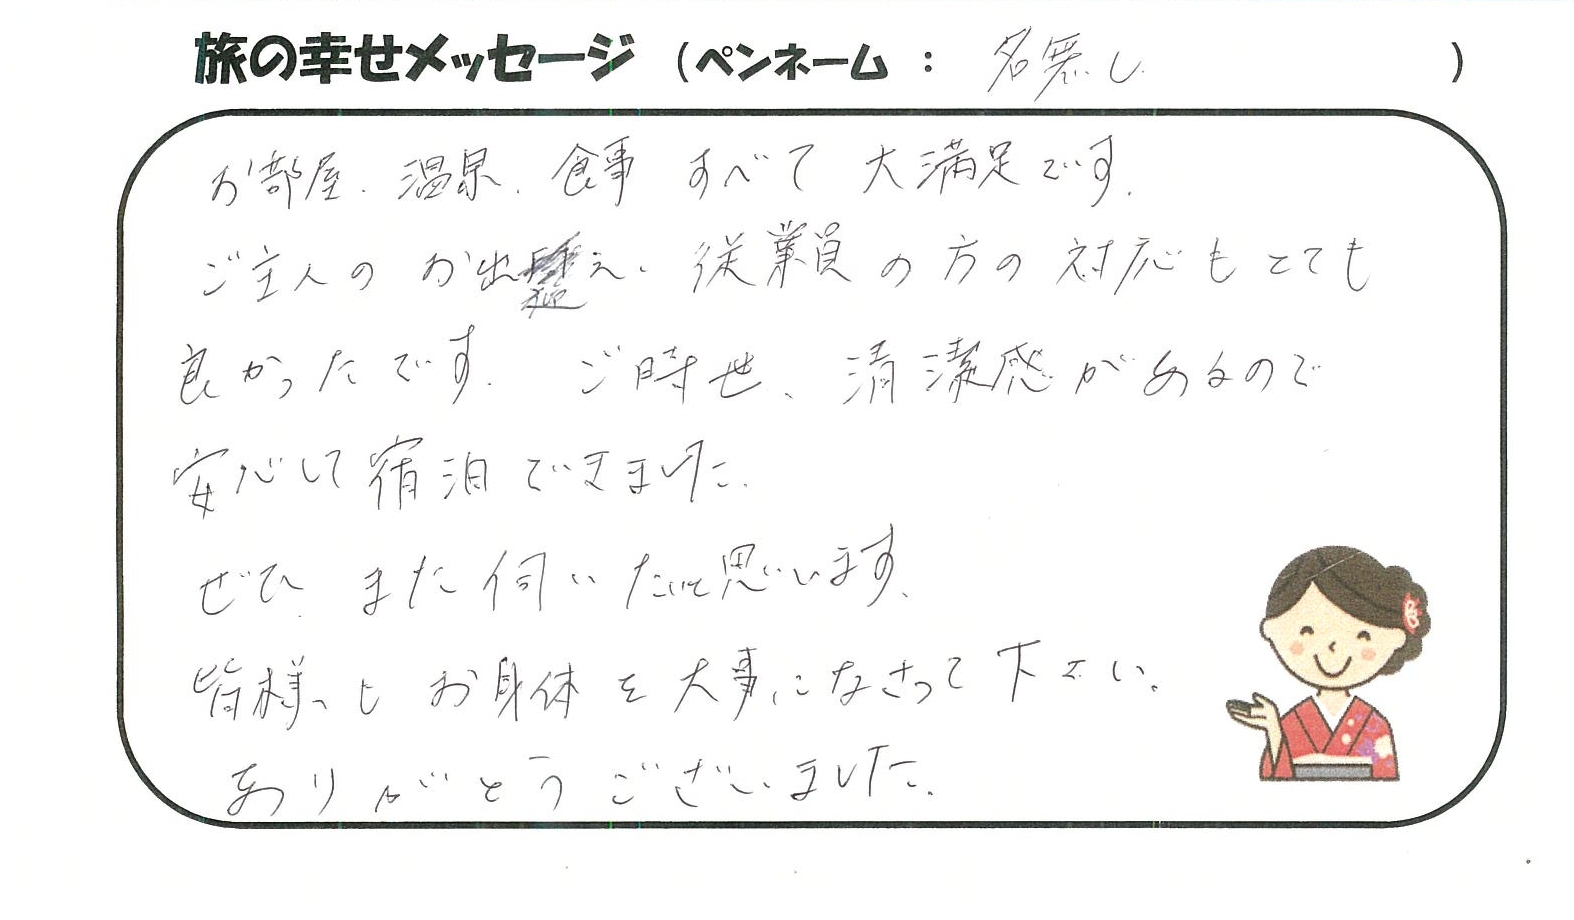 旅の幸せメッセージ (ペンネーム : 名無し )
お部屋、温泉、食事 すべて 大満足です。
ご主人の お出迎え、従業員の方の対応もとても
良かったです。 ご時世、清潔感があるので
安心して宿泊できました。
ぜひ、また伺いたいと思います。
皆様も お身体を大事になさって下さい。
ありがとうございました。